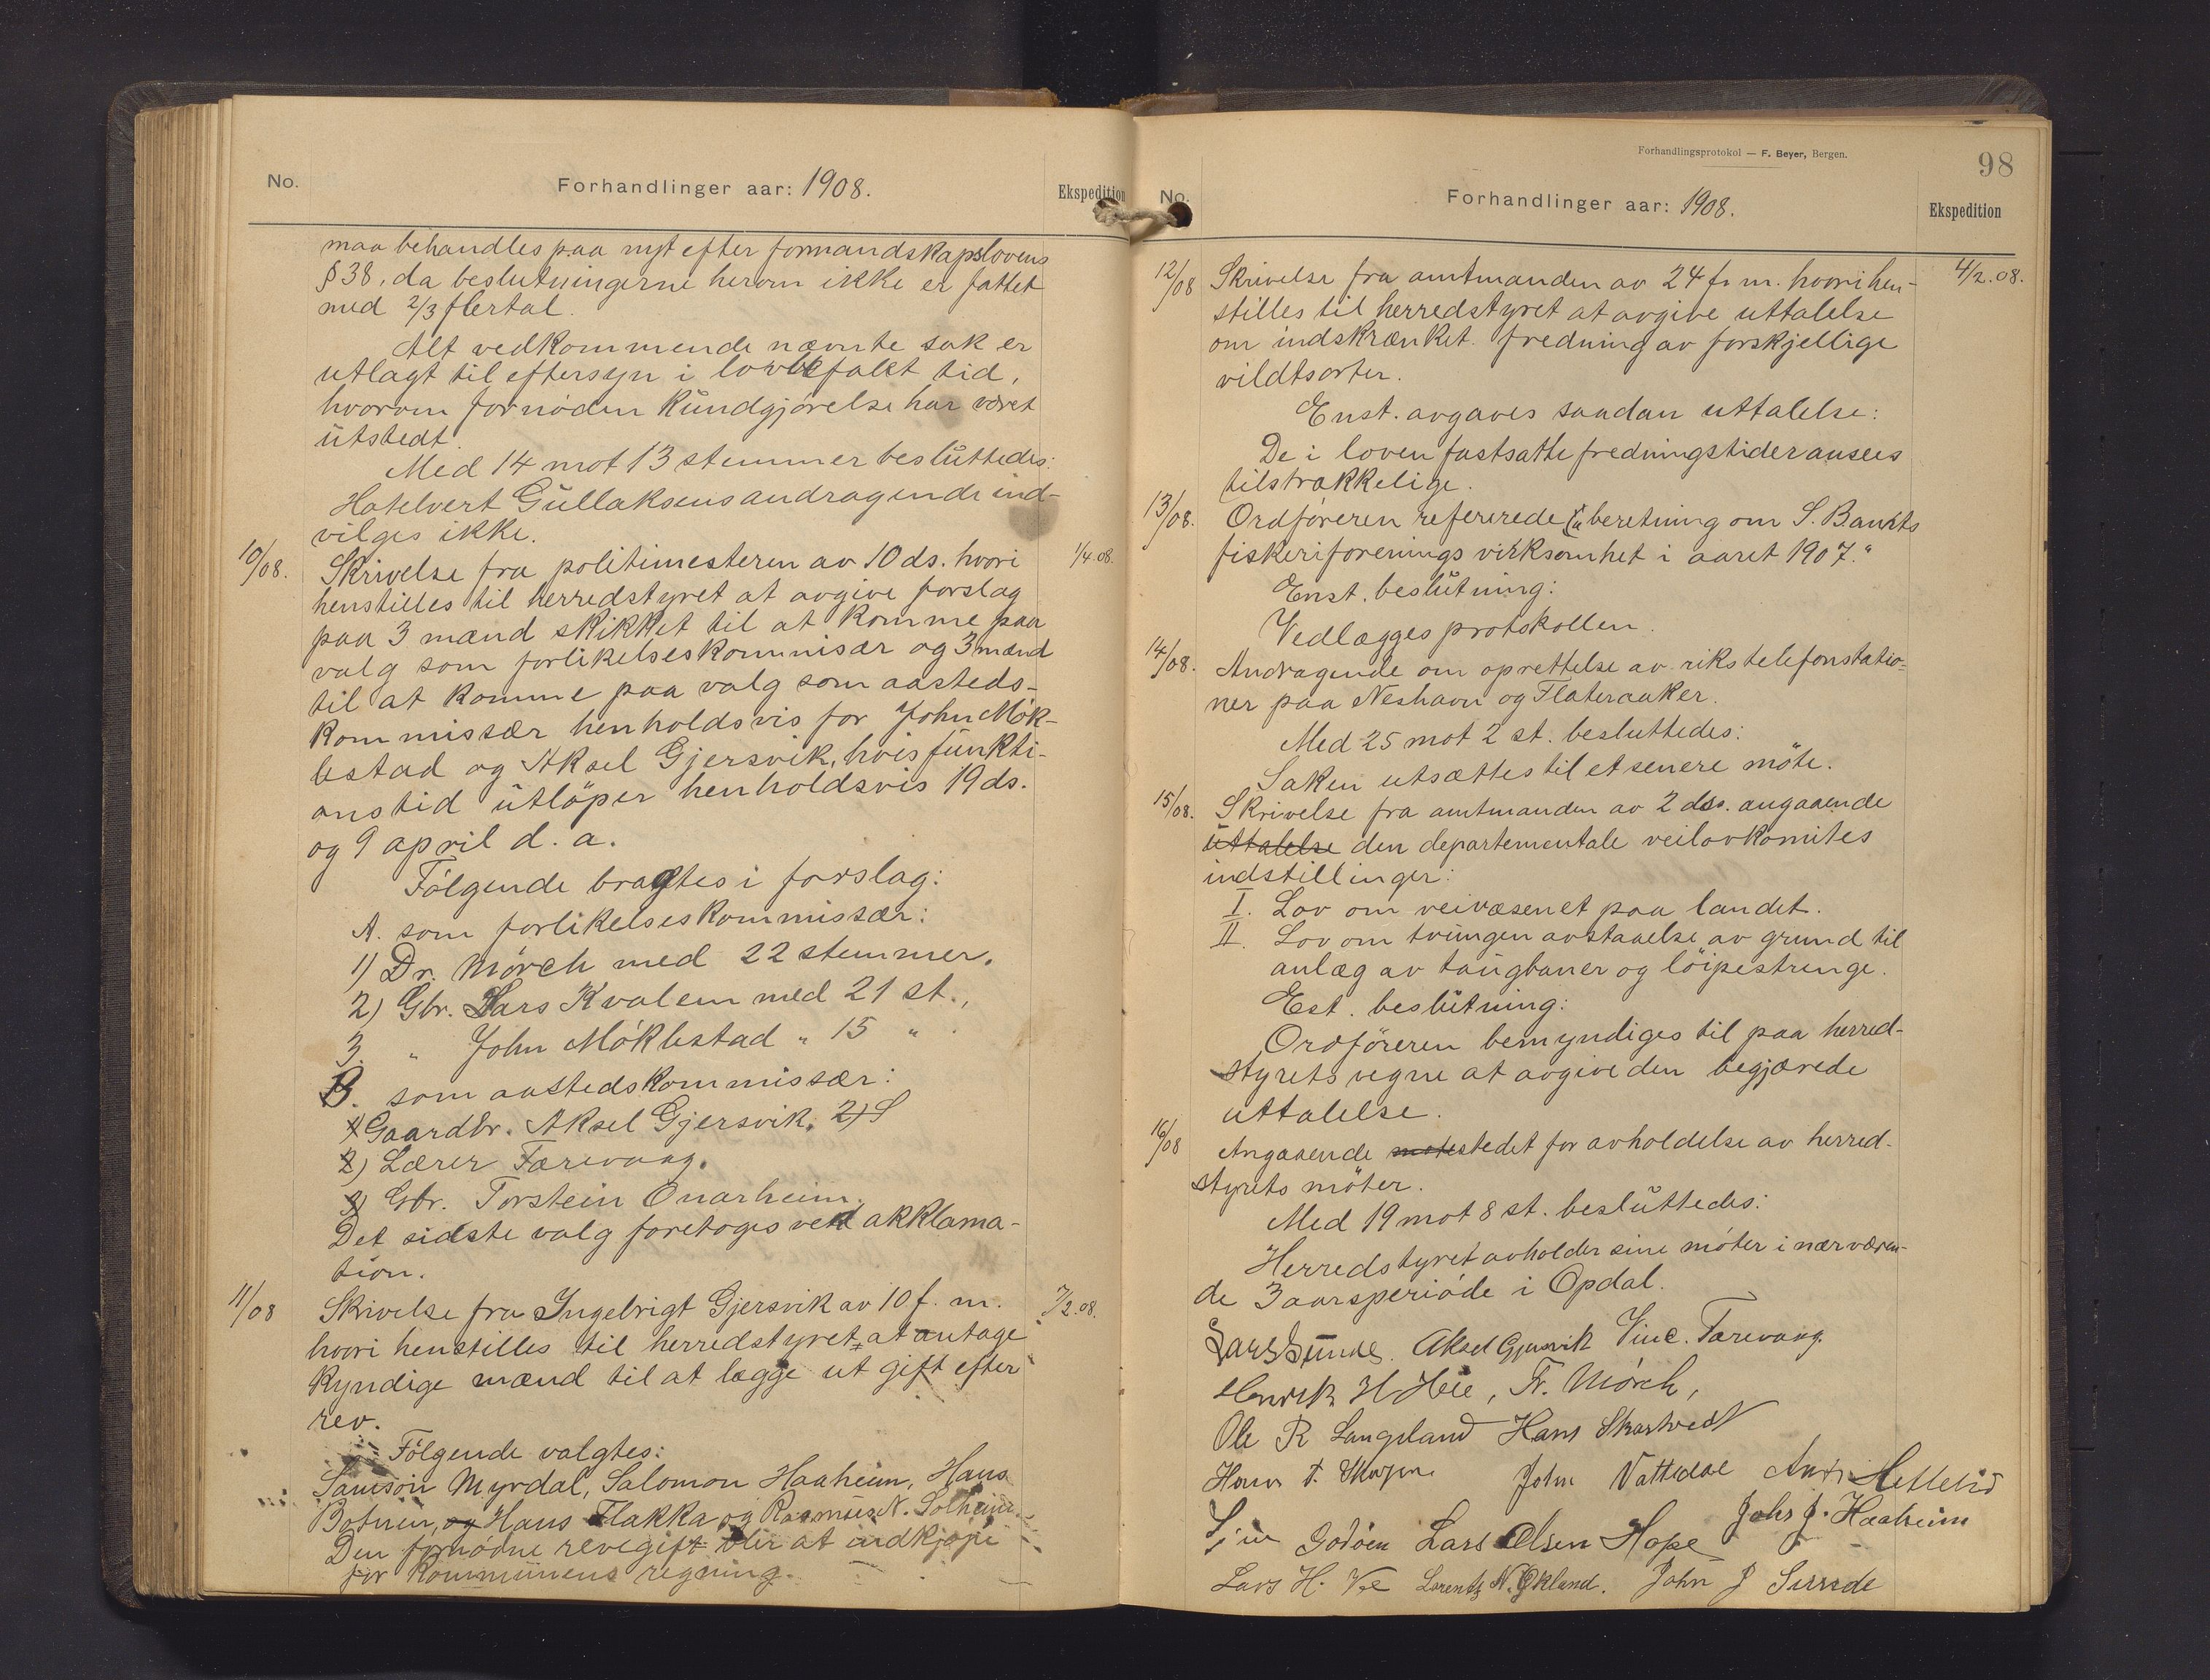 No.
Forhandlinger aar: 1908.
Ekspedition
maa behandles paa nyt efter formandskapslovens
§ 38, da beslutningerne herom ikke er fattet
med 2/3 flertal.
Alt vedkommende nævnte sak er
utlagt til eftersyn i lovbefalt tid,
hvorom fornöden kundgjörelse har været
utstedt.
Med 14 mot 13 stemmer besluttedes:
Hotelvert Gullaksens andragende ind-
vilges ikke.
10/08. Skrivelse fra politimesteren av 10 ds. hvori 1/4 08.
henstilles til herredstyret at avgive forslag
paa 3 mænd skikket til at komme paa
valg som forlikelseskommisær og 3 mænd
til at komme paa valg som aasteds-
kommissær henholdsvis for John Mök-
lestad og Aksel Gjersvik, hvis funkti-
onstid utlöper henholdsvis 19 ds.
og 9 april d. a.
Fölgende bragtes i forslag:
A. som forlikelseskommissær:
1) Dr. Mörch med 22 stemmer.
2) Gbr. Lars Kvalem med 21 st.,
3. " John Möklestad " 15 " .
B. som aastedskommissær:
1) Gaardbr. Aksel Gjersvik. 2) S
2) Lærer Færevaag.
3) Gbr. Torstein Onarheim.
Det sidste valg foretoges ved akklama-
tion.
11/08 Skrivelse fra Ingebrigt Gjersvik av 10 f. m. 7/2.08.
hvori henstilles til herredstyret at antage
kyndige mænd til at lægge ut gift efter
rev.
Fölgende valgtes:
Samson Myrdal, Salomon Haaheim, Hans
Botnen, og Hans Flakka og Rasmus N. Solheim.
Den fornödne revegift blir at indkjöpe
for kommunens regning.
Forhandlingsprotokol — F. Beyer, Bergen.
98
No.
Forhandlinger aar: 1908.
Ekspedition
12/08 Skrivelse fra amtmanden av 24 f. m. hvori hen- 4/2.08.
stilles til herredstyret at avgive uttalelse
om indskrænket fredning av forskjellige
vildtsorter.
Enst. avgaves saadan uttalelse:
De i loven fastsatte fredningstider ansees
tilstrækkelige.
13/08. Ordföreren refererede "beretning om S. Bamts
fiskeriforenings virksomhet i aaret 1907."
Enst. beslutning:
Vedlægges protokollen.
14/08. Andragende om oprettelse av rikstelefonstatio-
ner paa Neshavn og Flateraaker.
Med 25 mot 2 st. besluttedes:
Saken utsættes til et senere möte.
15/08. Skrivelse fra amtmanden av 2 ds. angaaende
uttalelse den departementale veilovkomites
indstillinger:
I. Lov om veivæsenet paa landet.
II. Lov om tvungen avstaaelse av grund til
anlæg av taugbaner og löipestrenge.
Est. beslutning:
Ordföreren bemyndiges til paa herred-
styrets vegne at avgive den begjærede
uttalelse.
16/08 Angaaende motestedet for avholdelse av herred-
styrets möter.
Med 19 mot 8 st. besluttedes:
Herredstyret avholder sine möter i nærværen-
de 3 aarsperiode i Opdal.
Lars Sunde. Aksel Gjersvik Vinc. Færevaag.
Henrik H Heie, Fr. Mörch,
Ole R Langeland Hans Skartvedt
Hans T. John Vattedal Helleliö
Godöen Lars Olsen Hope John J. Haaheim
Lars H. Vee Lorentz N. Økland. John J Sunde